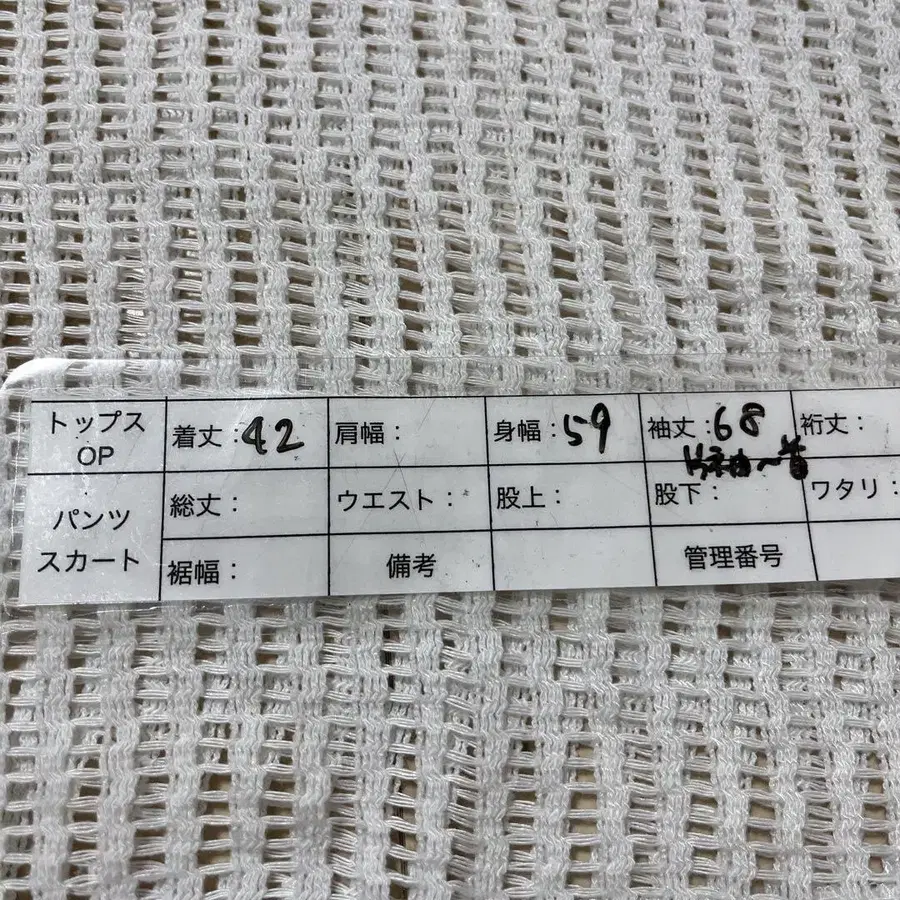 トップス OP 着丈：42 肩幅： 身幅：59 袖丈：68 裄丈：
片袖〜首
パンツ スカート 総丈： ウエスト： 股上： 股下： ワタリ：
裾幅： 備考 管理番号